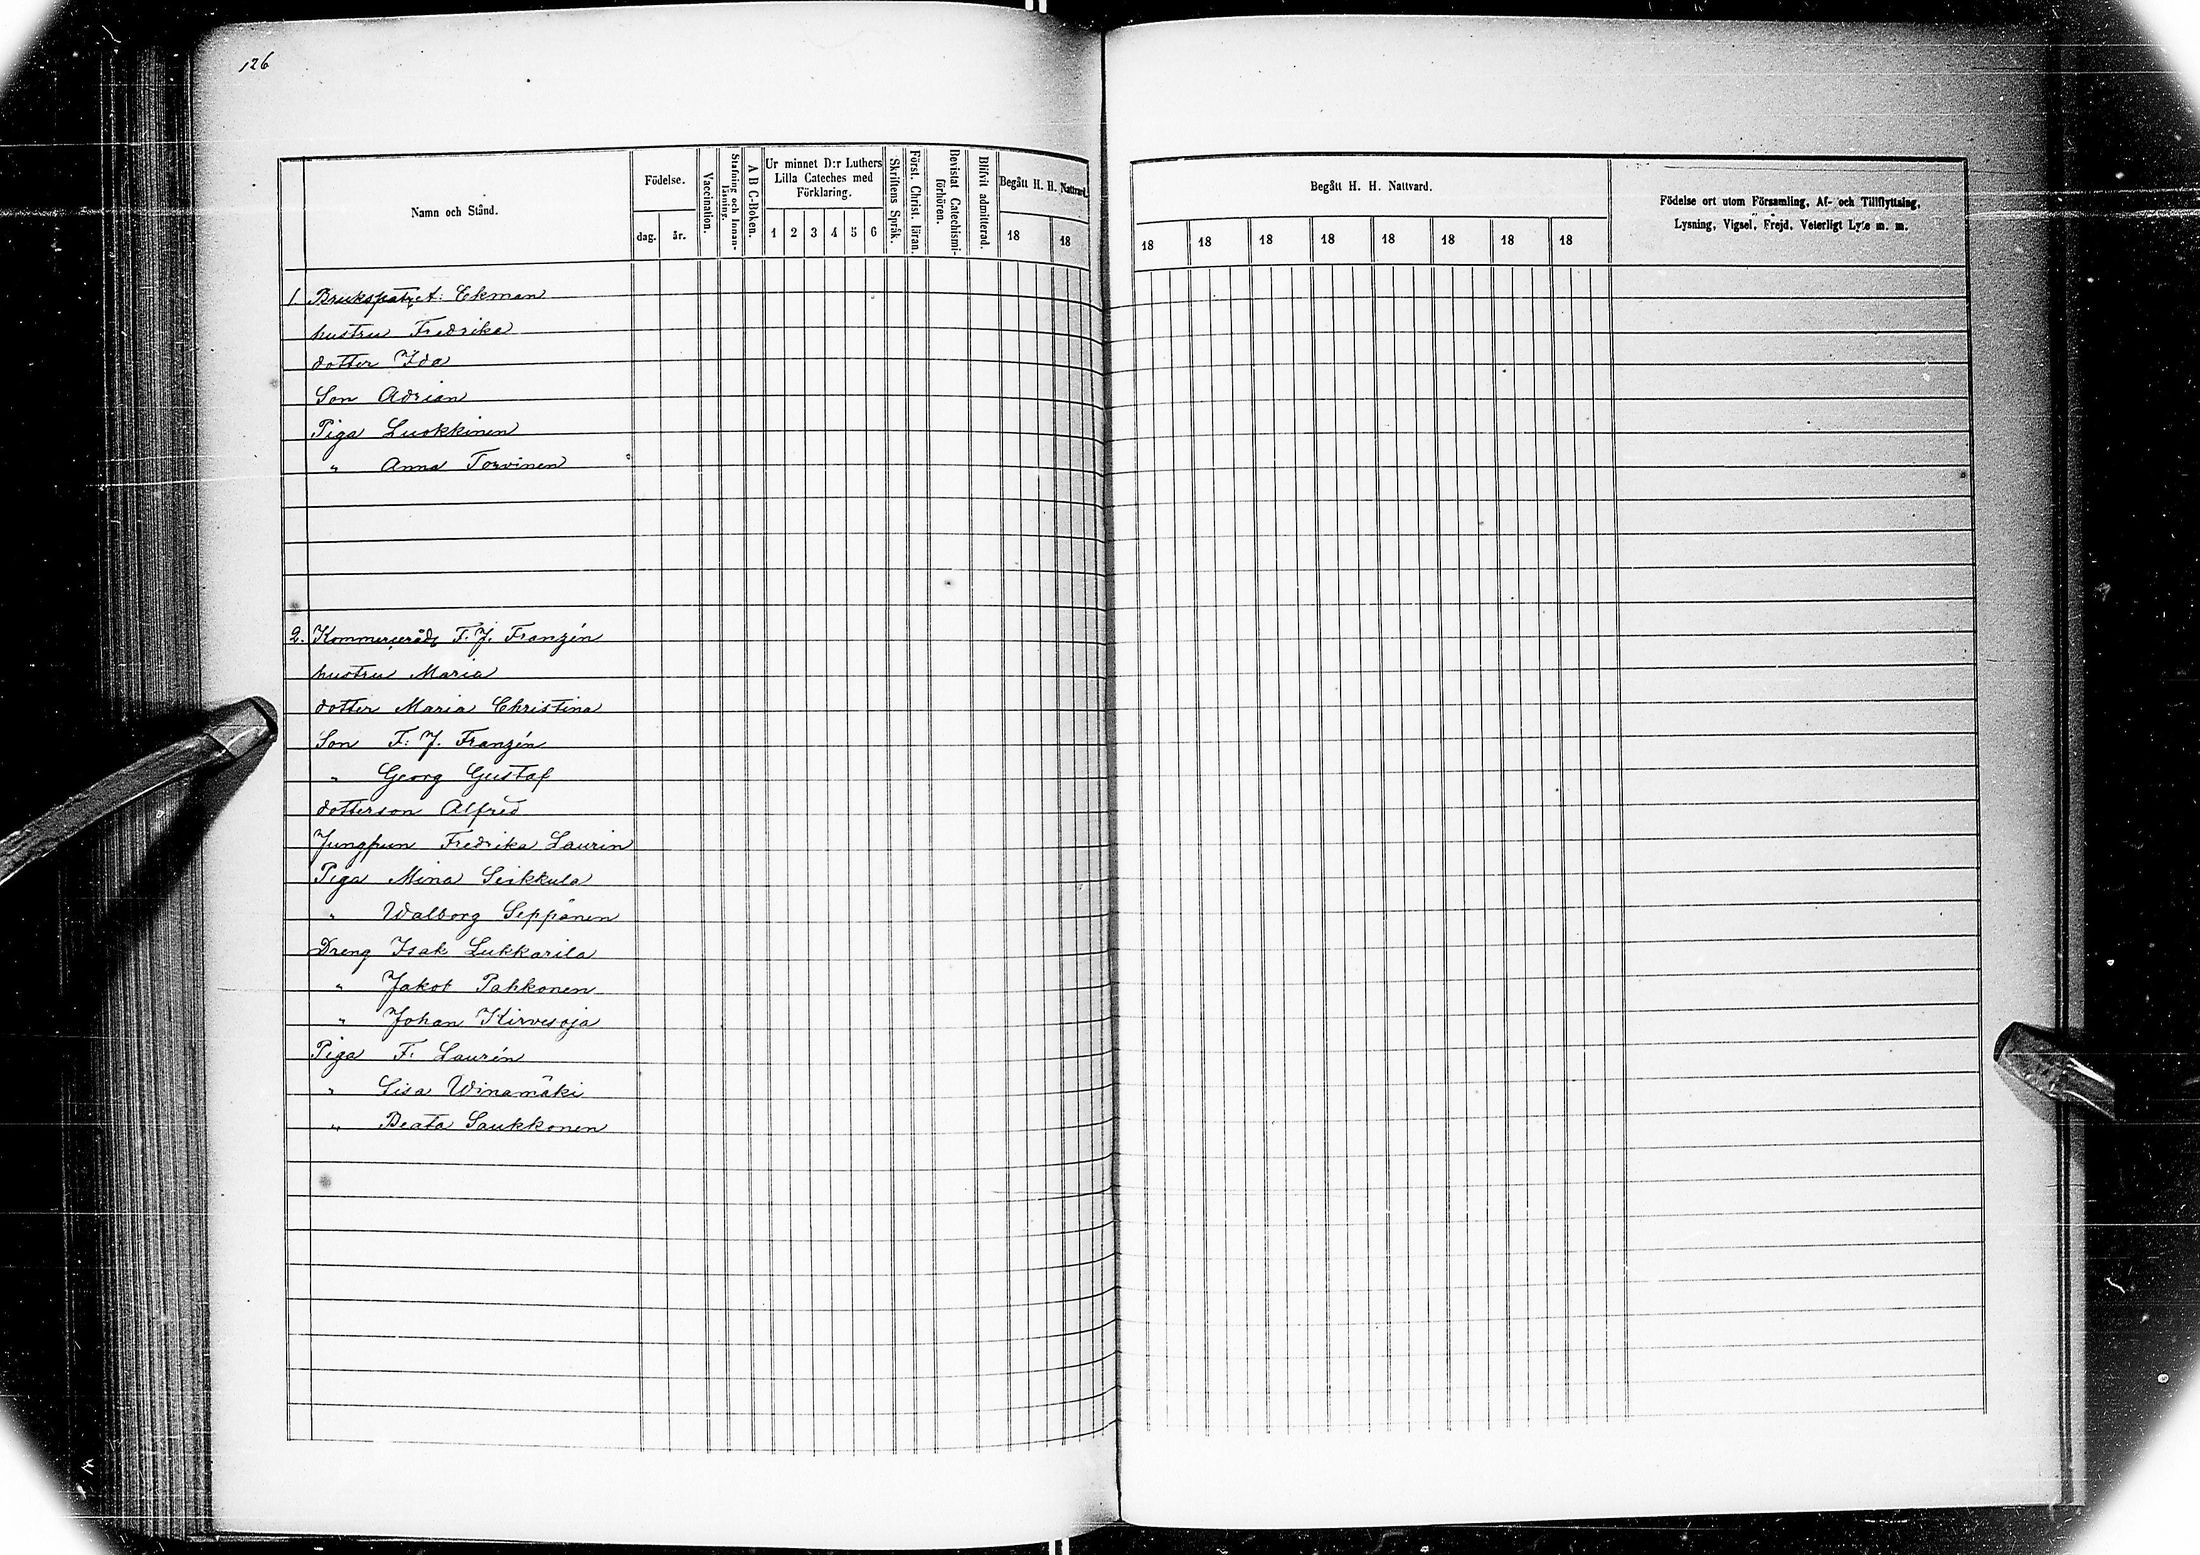 126
Namn och Stånd.
Födelse.
dag. år.
Vaccination.
Stafning och Innan-
läsning.
A B C-Boken.
Ur minnet D:r Luthers
Lilla Cateches med
Förklaring.
1 2 3 4 5 6
Skriftens Språk.
Först. Christ. läran.
Bevistat Catechismi-
förhören.
Blifvit admitterad.
Begått H. H. Nattvard.
18 18
Begått H. H. Nattvard.
18 18 18 18 18 18 18 18
Födelse ort utom Församling, Af- och Tillflyttning,
Lysning, Vigsel, Frejd, Veterligt Lyte m. m.
1. Brukspatr. A: Ekman
hustru Fredrika
dotter Ida
Son Adrian
Piga Luokkinen
" Anna Torvinen
2. Kommerseråd F. J. Franzén
hustru Maria
dotter Maria Christina
Son F: J. Franzén
" Georg Gustaf
dotterson Alfred
Jungfrun Fredrika Laurin
Piga Mina Seikkula
" Walborg Seppänen
Dreng Isak Lukkarila
" Jakob Pakkonen
" Johan Kirvesoja
Piga F. Laurén
" Lisa Winamäki
" Beata Saukkonen